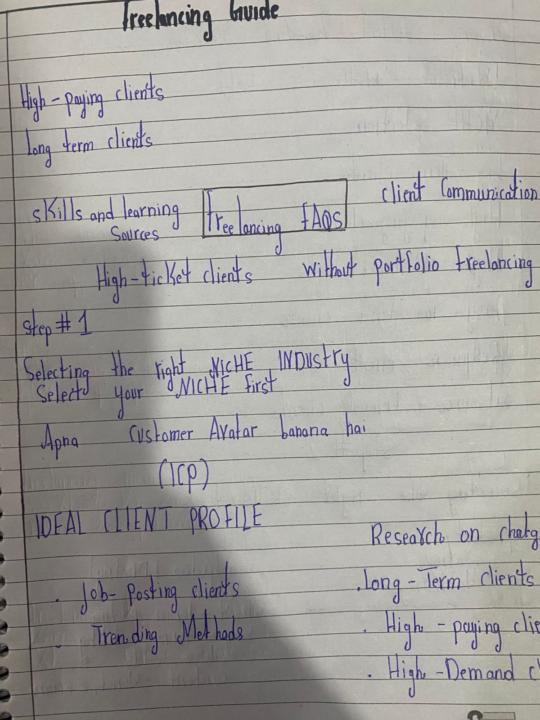 Freelancing Guide
High-paying clients
Long term clients
Client Communication
Skills and learning Sources
Freelancing FAQs
High-ticket clients
without portfolio freelancing
Step # 1
Selecting the right NICHE INDUstry
Select your NICHE first
Apna Customer Avatar banana hai
(ICP)
IDEAL CLIENT PROFILE
Research on chatg
. Job-Posting clients
. Long-Term clients
. Trending Methods
. High-paying clie
. High-Demand c